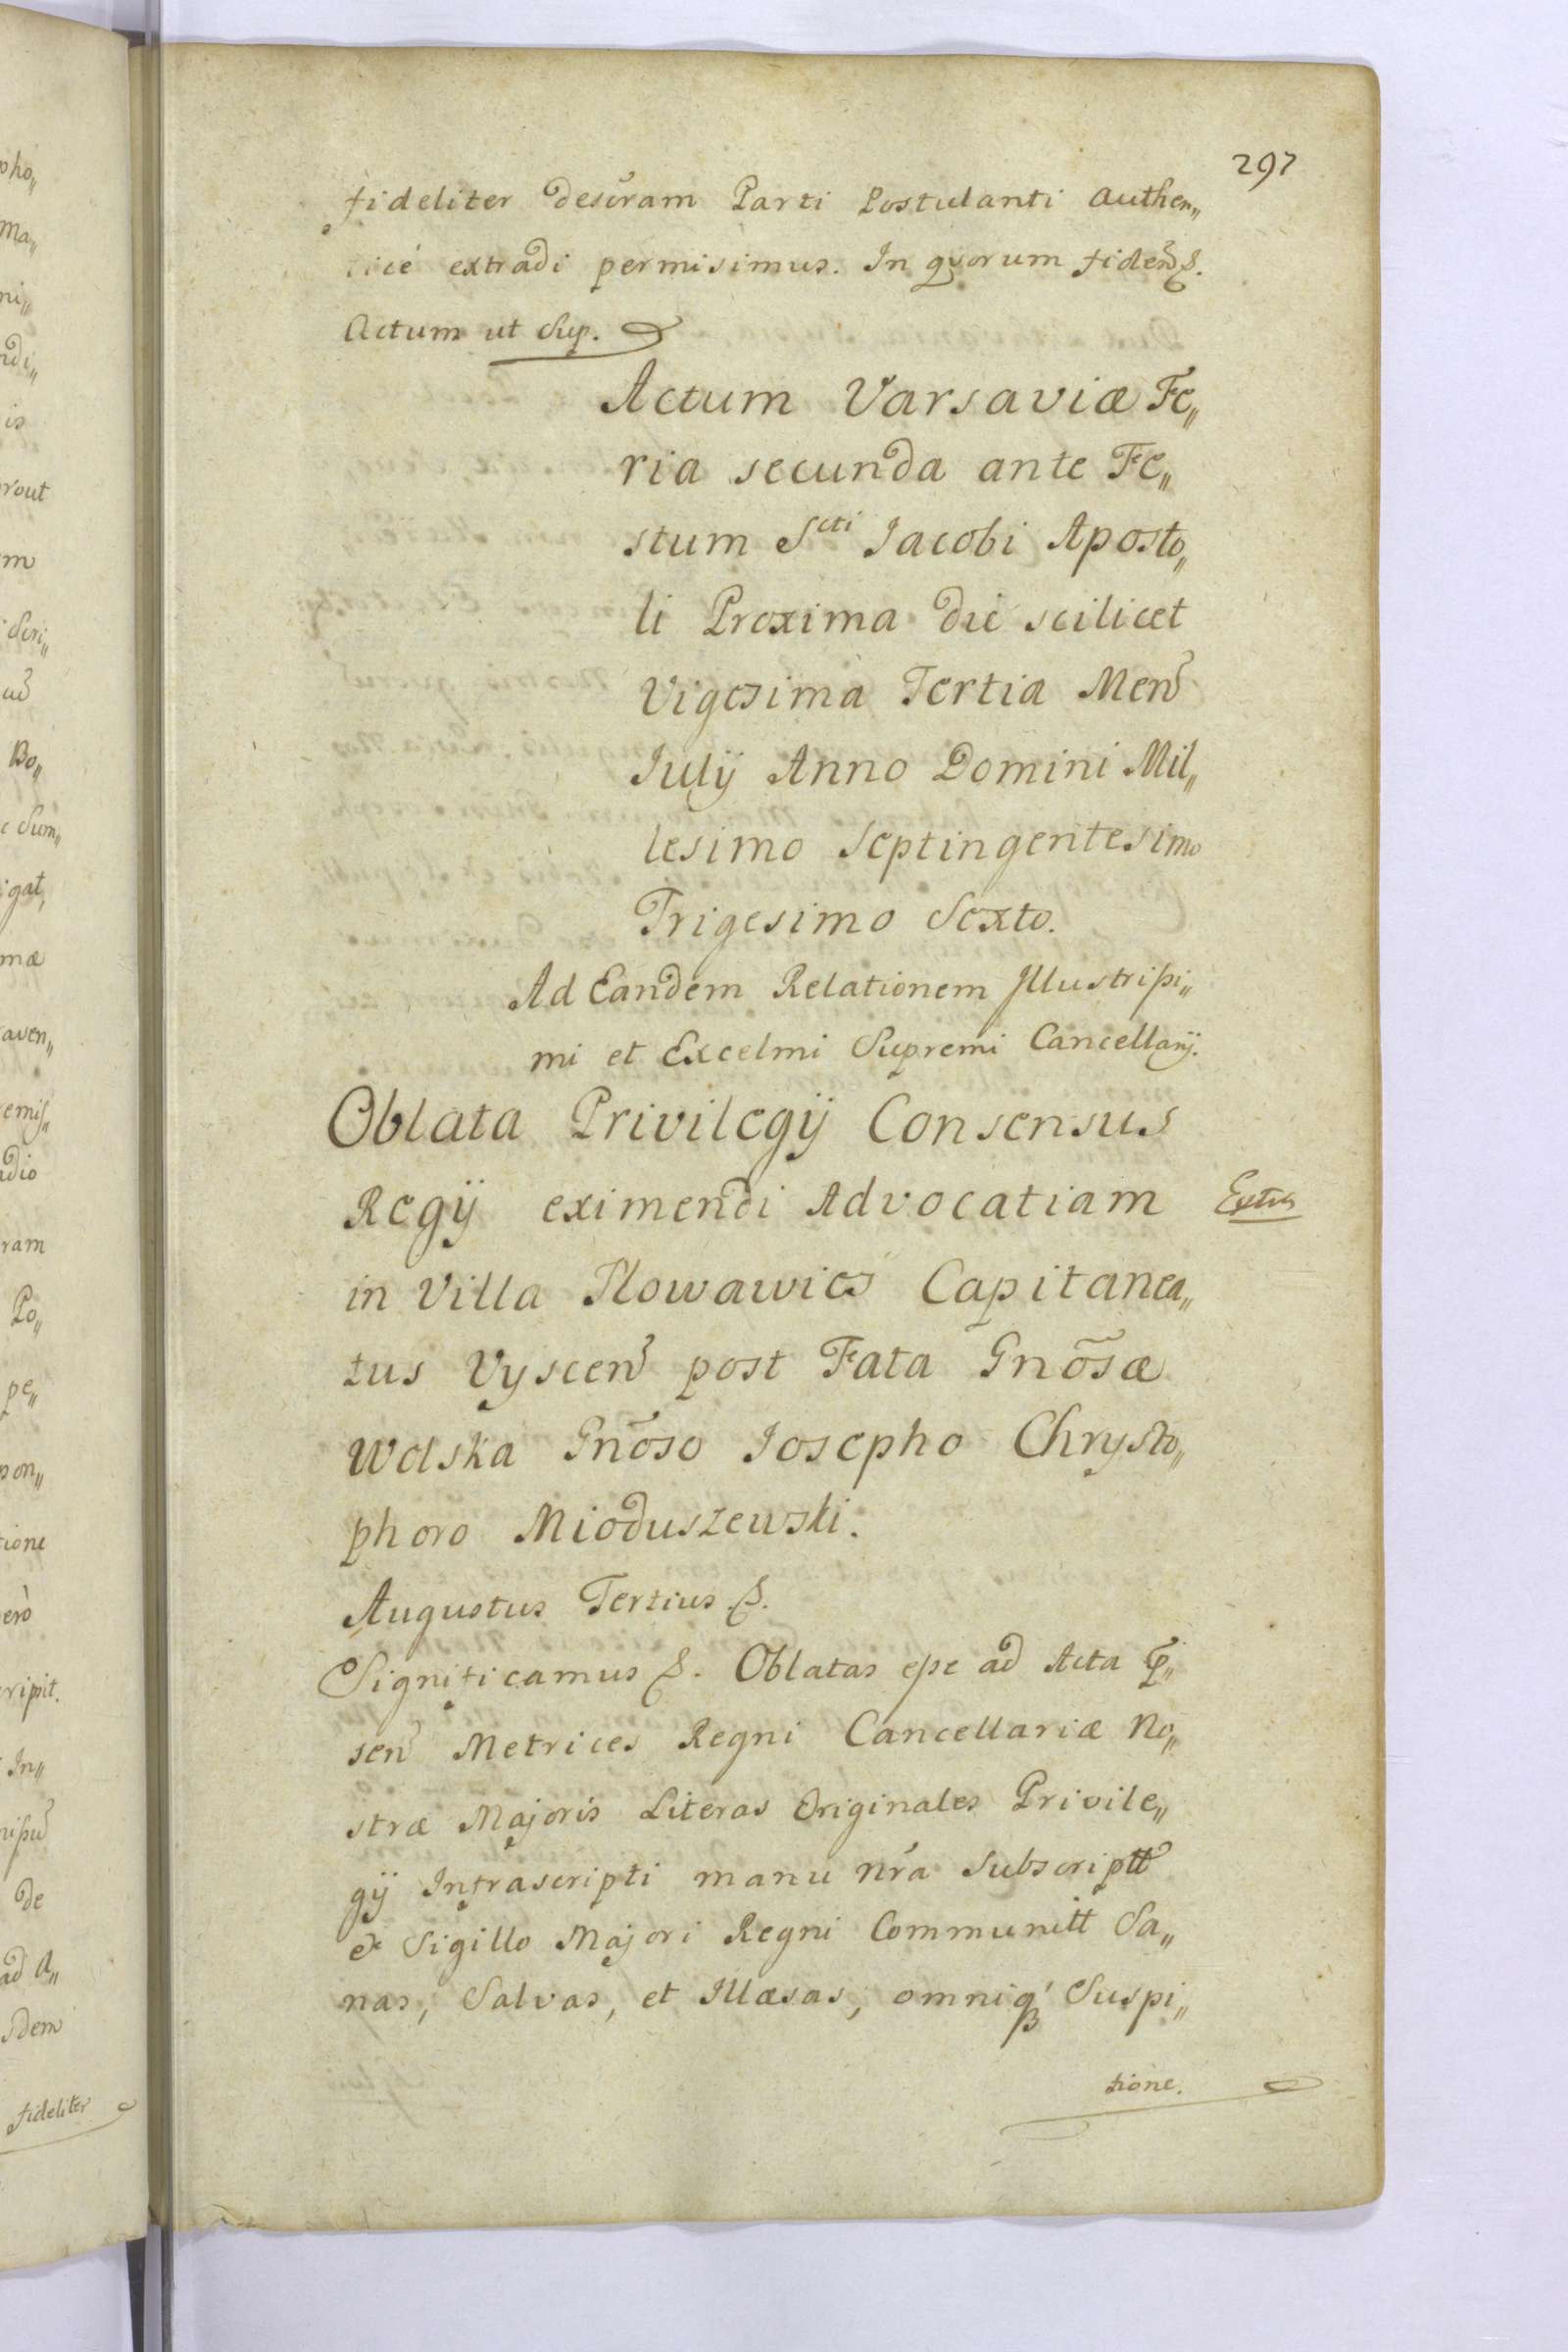 297
fideliter descram Parti Postulanti Authen„
ticé extradi permisimus. In quorum fidem &.
Actum ut Sup.
Actum Varsaviæ Fe„
ria secunda ante Fe„
stum Scti Jacobi Aposto„
li Proxima die scilicet
Vigesima Tertia Men
Julij Anno Domini Mil„
lesimo Septingentesimo
Trigesimo Sexto.
Ad Eandem Relationem Jllustrißi„
mi et Excelmi Supremi Cancellarij.
Oblata Privilegij Consensus
Regij eximendi Advocatiam
in Villa Plowawies Capitanea„
tus Vyscen post Fata Gnõsæ
Wolska Gnõso Josepho Chrysto„
phoro Mioduszewski.
Augustus Tertius &.
Significamus &. Oblatas eße ad Acta p̃„
sen Metrices Regni Cancellariæ No„
stræ Majoris Literas Originales Privile„
gij Infrascripti manu nr̃a Subscriptt
et Sigillo Majori Regni Communitt Sa„
nas, Salvas, et Illæsas, omniq́ Suspi„
tione.